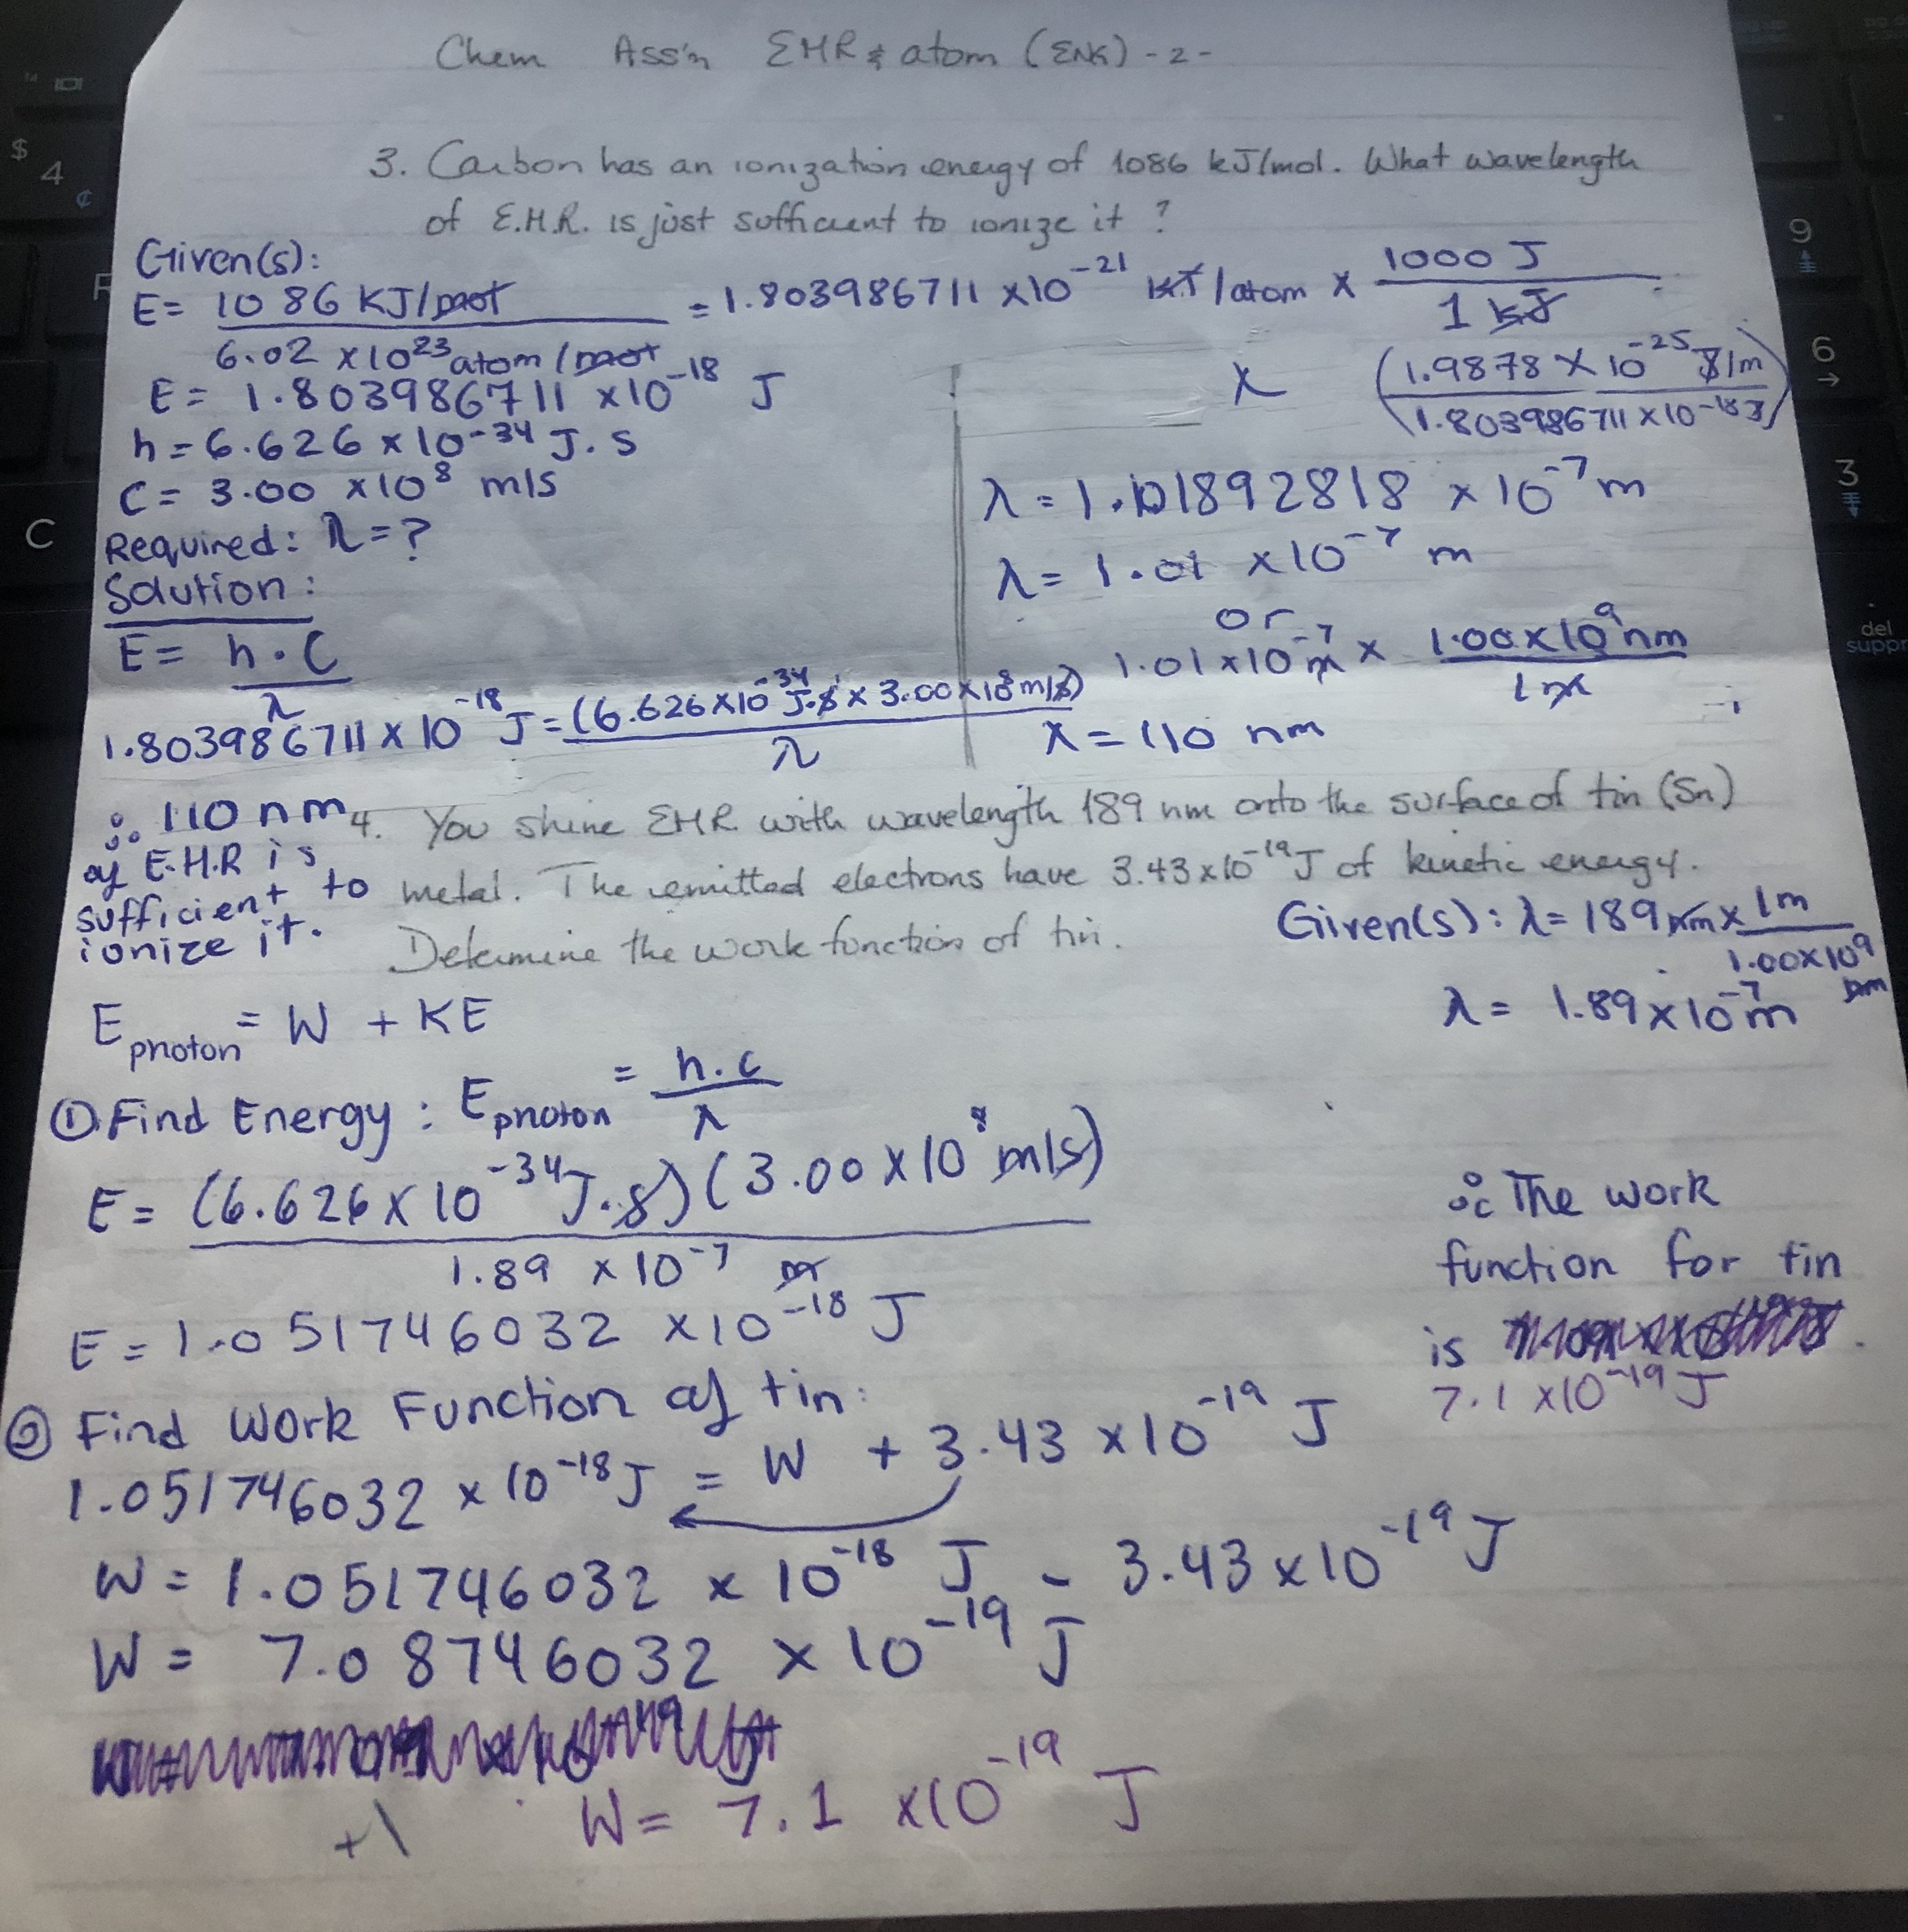 Chem Ass'n EMR & atom (ENK) -2-
3. Carbon has an ionization energy of 1086 kJ/mol. What wavelength
of E.M.R. is just sufficient to ionize it?
Given(s):
E = 1086 KJ/mol / 6.02 x10^23 atom/mol = 1.803986711 x10^-21 kJ/atom x 1000 J / 1 kJ
E = 1.8039867 11 x10^-18 J
h = 6.626 x 10^-34 J.s
C = 3.00 x10^8 m/s
Required: λ = ?
Solution:
E = h.C / λ
1.803986711 x 10^-18 J = (6.626 x10^-34 J.s x 3.00 x10^8 m/s) / λ
λ (1.9878 x 10^-25 J/m / 1.803986711 x 10^-18 J)
λ = 1.101892818 x 10^-7 m
λ = 1.01 x10^-7 m
or
1.01 x10^-7 m x 1.00 x 10^9 nm / 1 m
λ = 110 nm
∴ 110 nm
of E.H.R is
sufficient to
ionize it.
4. You shine EMR with wavelength 189 nm onto the surface of tin (Sn)
metal. The emitted electrons have 3.43x10^-19 J of kinetic energy.
Determine the work function of tin.
Given(s): λ = 189 nm x 1m / 1.00x10^9 nm
λ = 1.89 x 10^-7 m
E photon = W + KE
① Find Energy: E photon = h.c / λ
E = (6.626 x 10^-34 J.s) (3.00 x 10^8 m/s) / 1.89 x 10^-7 m
E = 1.051746032 x10^-18 J
② Find Work Function of tin:
1.051746032 x 10^-18 J = W + 3.43 x10^-19 J
W = 1.051746032 x 10^-18 J - 3.43 x 10^-19 J
W = 7.08746032 x 10^-19 J
W = 7.1 x10^-19 J
+1
∴ The work
function for tin
is
7.1 x10^-19 J
$
4
¢
F
C
9
6
3
del
suppr